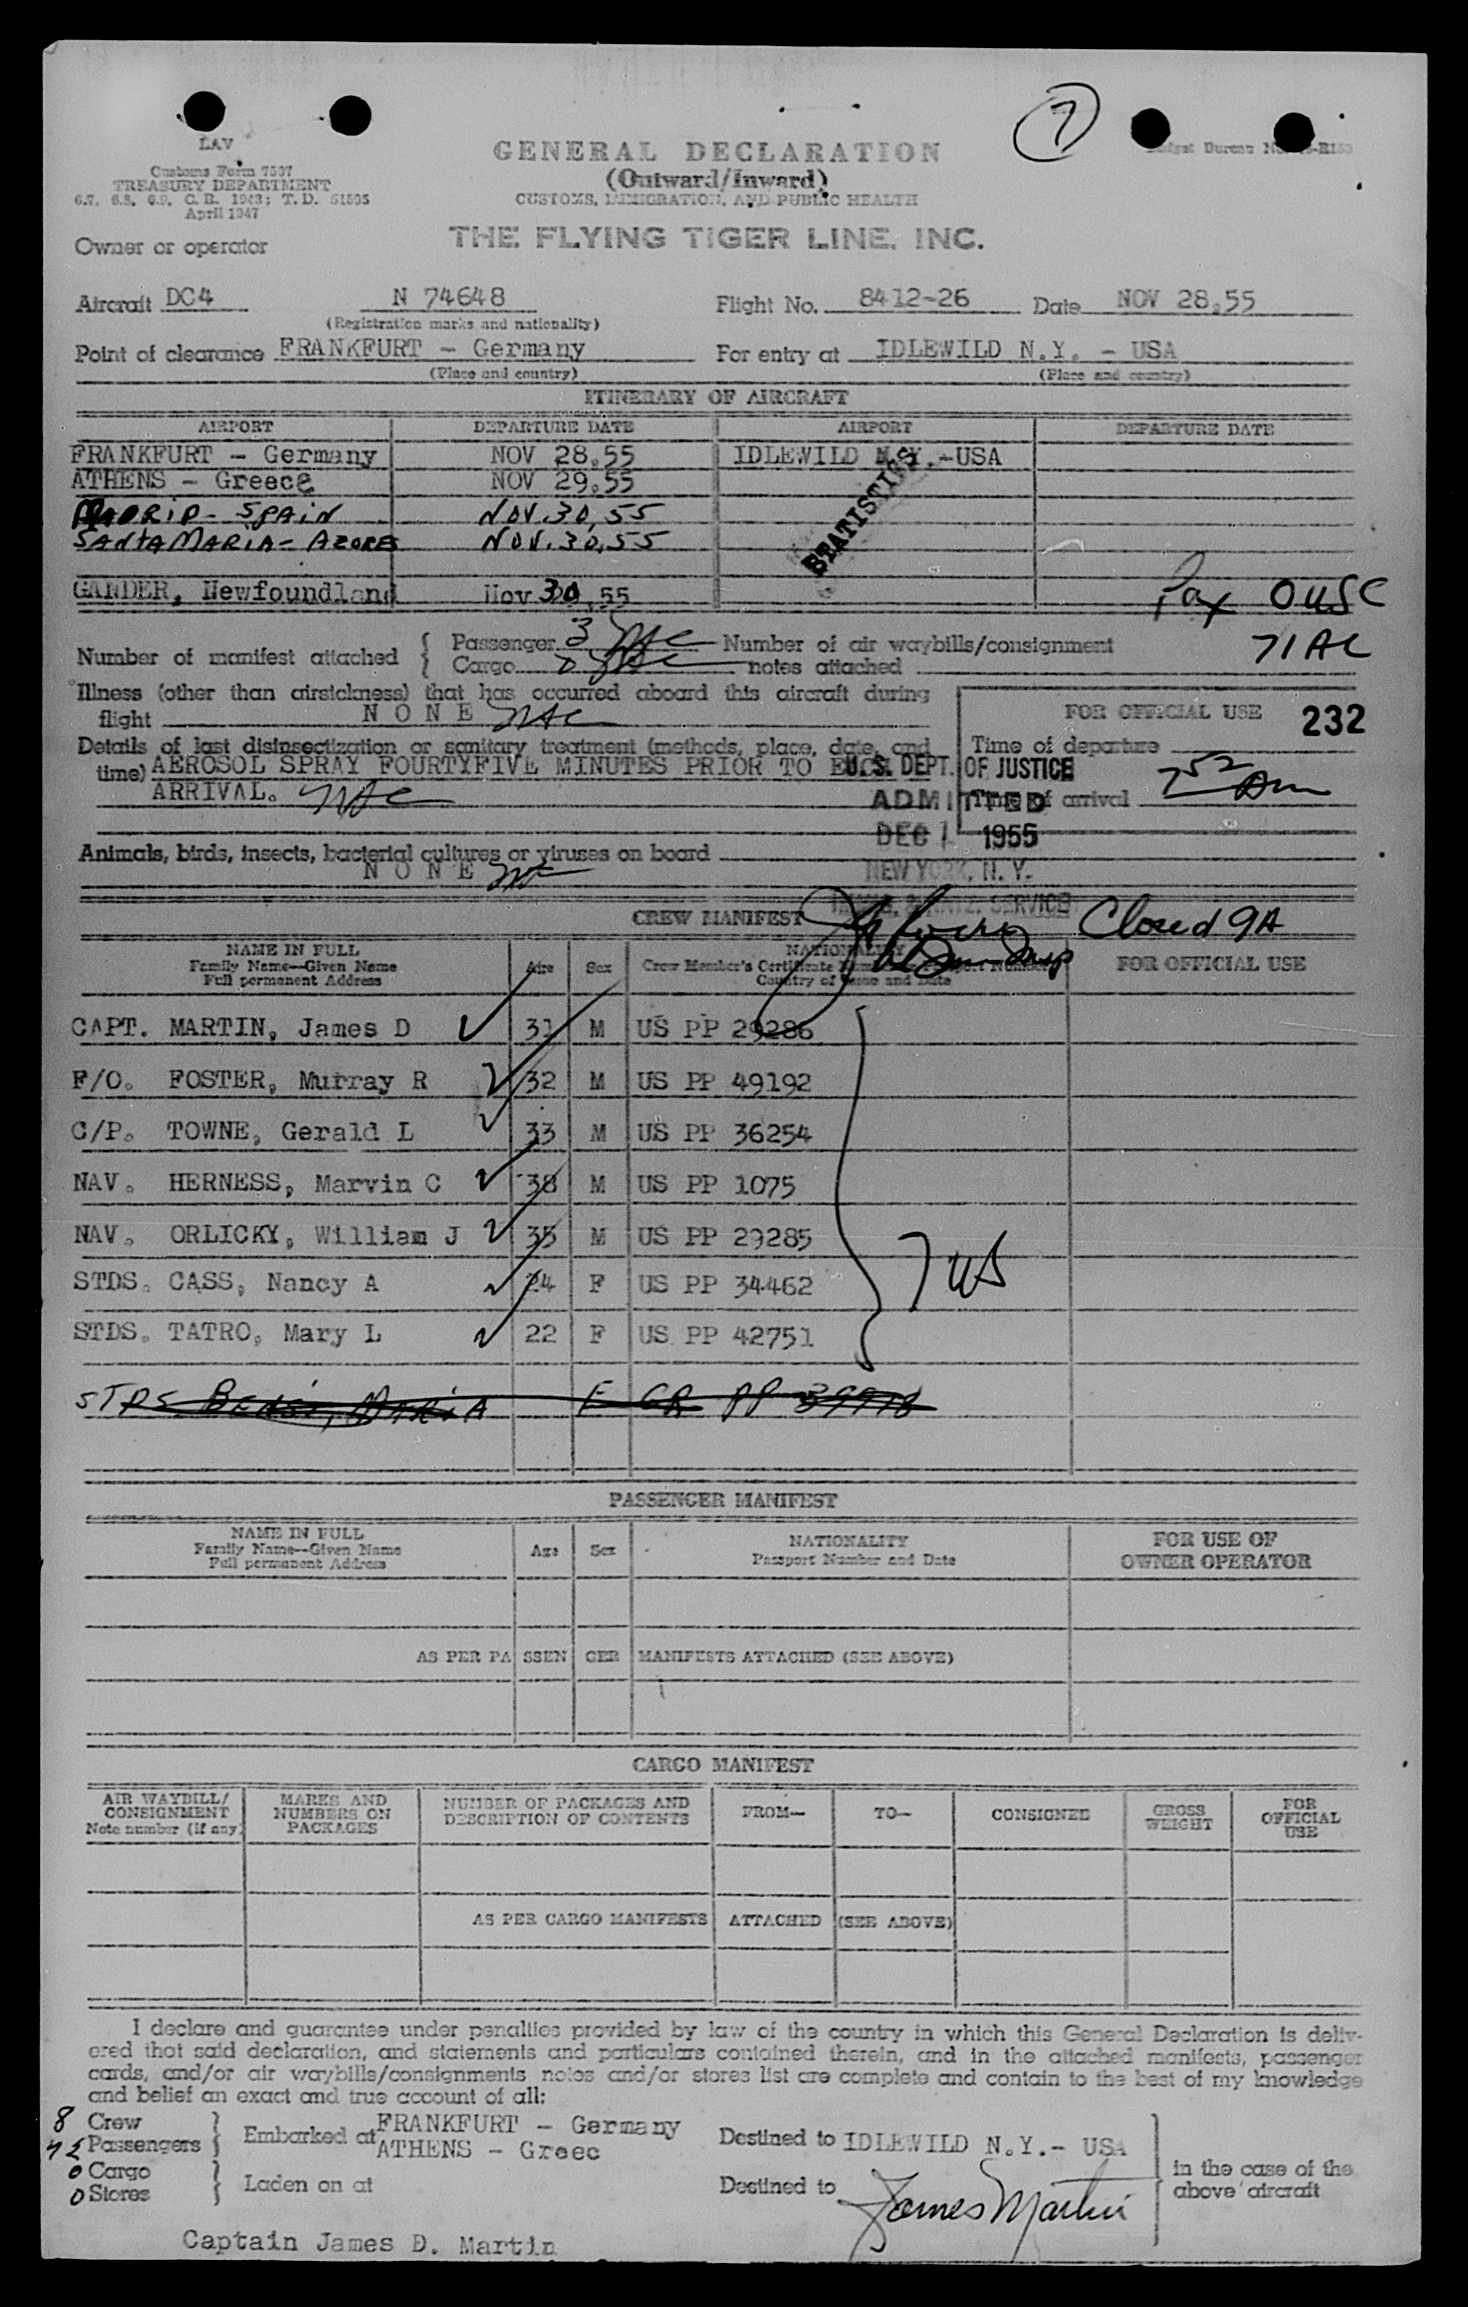 7
LAV
Customs Form 7507
TREASURY DEPARTMENT
6.7, 6.8, 6.9, C. R. 1943; T. D. 51505
April 1947
GENERAL DECLARATION
(Outward/Inward)
CUSTOMS, IMMIGRATION, AND PUBLIC HEALTH
Budget Bureau No.
Owner or operator
THE FLYING TIGER LINE, INC.
Aircraft DC4 N 74648 Flight No. 8412-26 Date NOV 28,55
(Registration marks and nationality)
Point of clearance FRANKFURT - Germany For entry at IDLEWILD N.Y. - USA
(Place and country) (Place and country)
ITINERARY OF AIRCRAFT
AIRPORT DEPARTURE DATE AIRPORT DEPARTURE DATE
FRANKFURT - Germany NOV 28,55 IDLEWILD N.Y.-USA
ATHENS - Greece NOV 29,55
MADRID - SPAIN NOV. 30, 55
SANTA MARIA - AZORES NOV. 30, 55
STATISTICS
GANDER, Newfoundland Nov 30,55
Pax 0 USC
71 AL
Number of manifest attached { Passenger 3 Number of air waybills/consignment
Cargo 0 notes attached
Illness (other than airsickness) that has occurred aboard this aircraft during
flight N O N E
FOR OFFICIAL USE 232
Details of last disinsectization or sanitary treatment (methods, place, date, and
time) AEROSOL SPRAY FOURTYFIVE MINUTES PRIOR TO EACH
ARRIVAL.
Time of departure
U.S. DEPT. OF JUSTICE
Time of arrival 7 52 Am
ADMITTED
DEC 1 1955
NEW YORK, N. Y.
IMMIG. & NATZ. SERVICE
Animals, birds, insects, bacterial cultures or viruses on board
N O N E
CREW MANIFEST
Closed 9A
NAME IN FULL
Family Name—Given Name
Full permanent Address
Age Sex NATIONALITY
FOR OFFICIAL USE
CAPT. MARTIN, James D 31 M US PP 29286
F/O. FOSTER, Murray R 32 M US PP 49192
C/P. TOWNE, Gerald L 33 M US PP 36254
NAV. HERNESS, Marvin C 38 M US PP 1075
NAV. ORLICKY, William J 35 M US PP 29285
STDS. CASS, Nancy A 24 F US PP 34462
7 US
STDS. TATRO, Mary L 22 F US PP 42751
STDS MARIA F GR PP
PASSENGER MANIFEST
NAME IN FULL
Family Name—Given Name
Full permanent Address
Age Sex NATIONALITY
Passport Number and Date
FOR USE OF
OWNER OPERATOR
AS PER PA SSEN GER MANIFESTS ATTACHED (SEE ABOVE)
CARGO MANIFEST
AIR WAYBILL/
CONSIGNMENT
Note number (if any)
MARKS AND
NUMBERS ON
PACKAGES
NUMBER OF PACKAGES AND
DESCRIPTION OF CONTENTS
FROM— TO— CONSIGNEE
GROSS
WEIGHT
FOR
OFFICIAL
USE
AS PER CARGO MANIFESTS ATTACHED (SEE ABOVE)
I declare and guarantee under penalties provided by law of the country in which this General Declaration is deliv-
ered that said declaration, and statements and particulars contained therein, and in the attached manifests, passenger
cards, and/or air waybills/consignments notes and/or stores list are complete and contain to the best of my knowledge
and belief an exact and true account of all:
8 Crew
Passengers
Embarked at FRANKFURT - Germany
ATHENS - Greec
Destined to IDLEWILD N.Y.- USA
0 Cargo
0 Stores
Laden on at
Destined to
in the case of the
above aircraft
James Martin
Captain James D. Martin